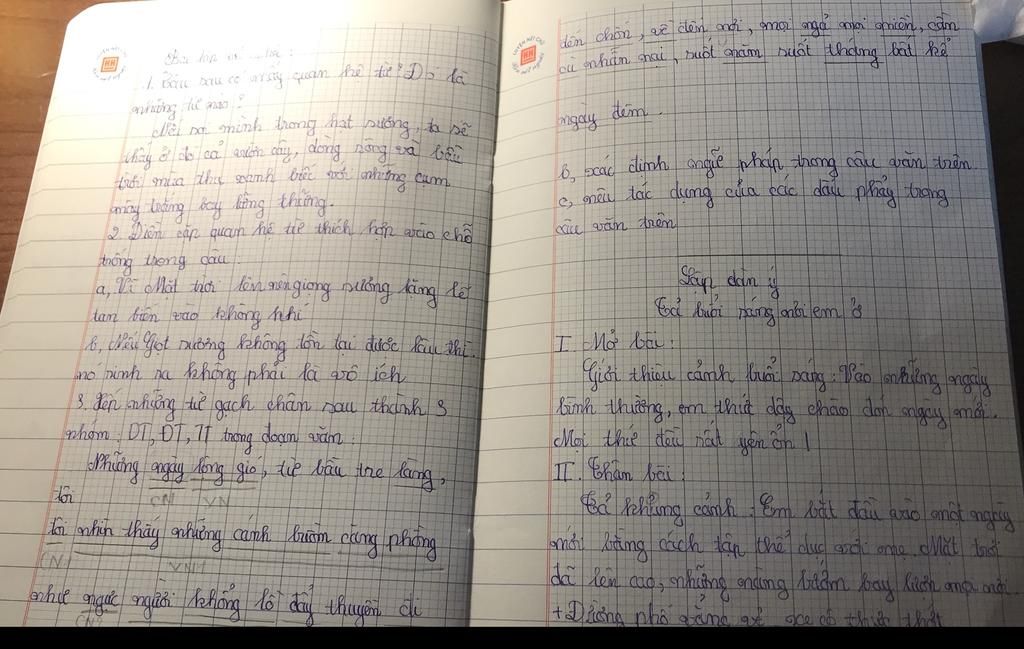 1. Câu sau có mấy quan hệ từ? Đó là
những từ nào?
mình trong hạt sương, ta sẽ
thấy ở đó cả vườn cây, dòng sông và bầu
trời mùa thu xanh biếc với những cụm
mây trắng bay lững thững.
2. Điền cặp quan hệ từ thích hợp vào chỗ
trống trong câu:
a, Vì Mặt trời lên nên giọng sương lặng lẽ
tan biến vào không khí
b, Nếu Giọt sương không tồn tại được lâu thì
nó sinh ra không phải là vô ích
3. những từ gạch chân sau thành 3
nhóm: DT, ĐT, TT trong đoạn văn:
Những ngày lộng gió, từ bầu tre làng,
CN VN
tôi
tôi nhìn thấy những cánh buồm căng phồng
CN VN
như ngực người khổng lồ đẩy thuyền đi
CN
đến chốn, về đến nơi, mọi ngả mọi miền, cần
cù nhẫn nại, suốt năm suốt tháng bất kể
ngày đêm.
b, xác định ngữ pháp trong câu văn trên.
c, nêu tác dụng của các dấu phẩy trong
câu văn trên
Lập dàn ý
Tả buổi sáng nơi em ở
I. Mở bài:
Giới thiệu cảnh buổi sáng: Vào những ngày
bình thường, em thức dậy chào đón ngày mới.
Mọi thứ đều rất yên ổn!
II. Thân bài:
Tả khung cảnh: Em bắt đầu vào một ngày
mới bằng cách tập thể dục với mẹ. Mặt trời
đã lên cao, những nàng bướm bay lượn mọi nơi.
+ Đường phố vắng vẻ, xe cộ thưa thớt